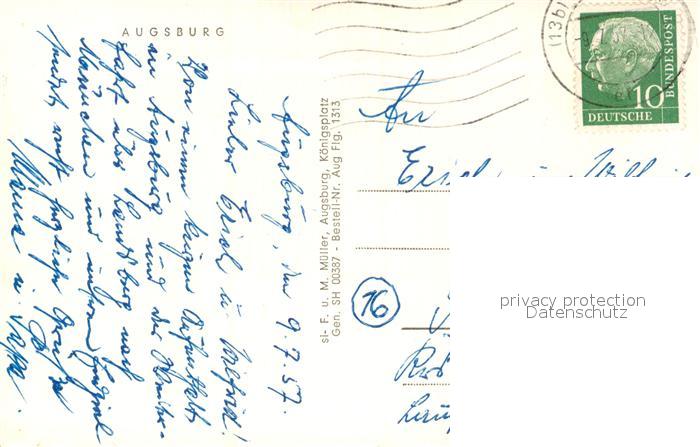 AUGSBURG
Augsburg, den 9.7.57.
Lieber Erich u. Wilfried!
Von einem kurzen Aufenthalt
in Augsburg und der
fahrt über Landsberg nach
München und
sendet Euch herzliche Grüße
Mama u. Papa.
sl- F. u. M. Müller, Augsburg, Königsplatz
Gen. SH 00387 - Bestell-Nr. Aug Flg. 1313
(13b)
DEUTSCHE
BUNDESPOST
10
An
Erich
16
privacy protection
Datenschutz